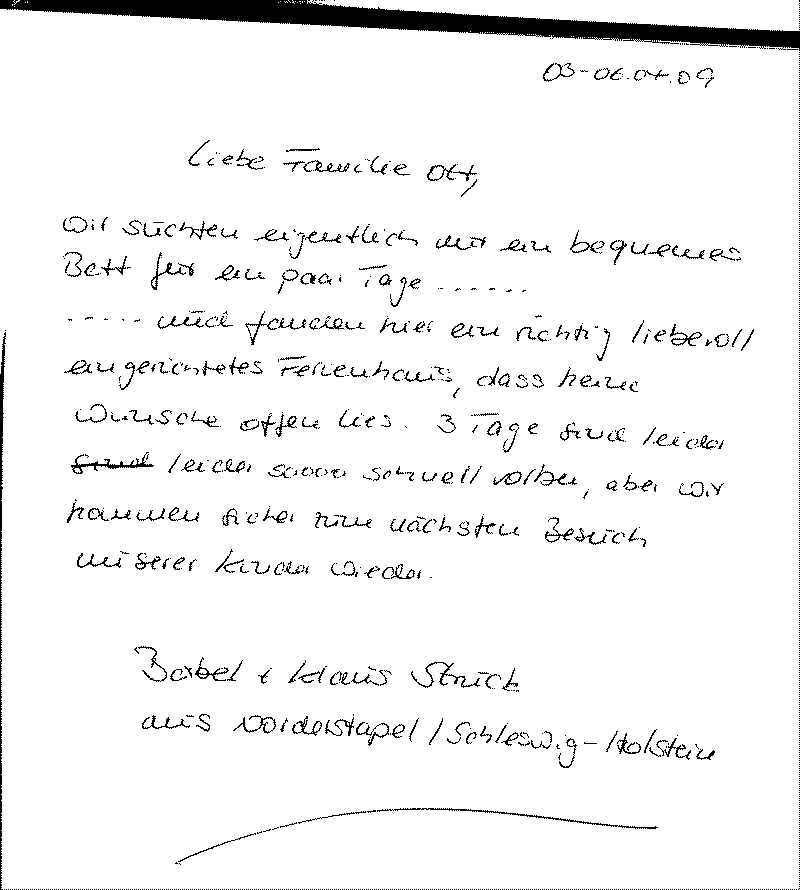 03-06.04.09
Liebe Familie Ott,
wir suchten eigentlich nur ein bequemes
Bett für ein paar Tage ......
..... und fanden hier ein richtig liebevoll
eingerichtetes Ferienhaus, dass keine
Wünsche offen lies. 3 Tage sind leider
sind leider soooo schnell vorbei, aber wir
kommen sicher zum nächsten Besuch
unserer Kinder wieder.
Bärbel + Klaus Struck
aus Norderstapel / Schleswig-Holstein